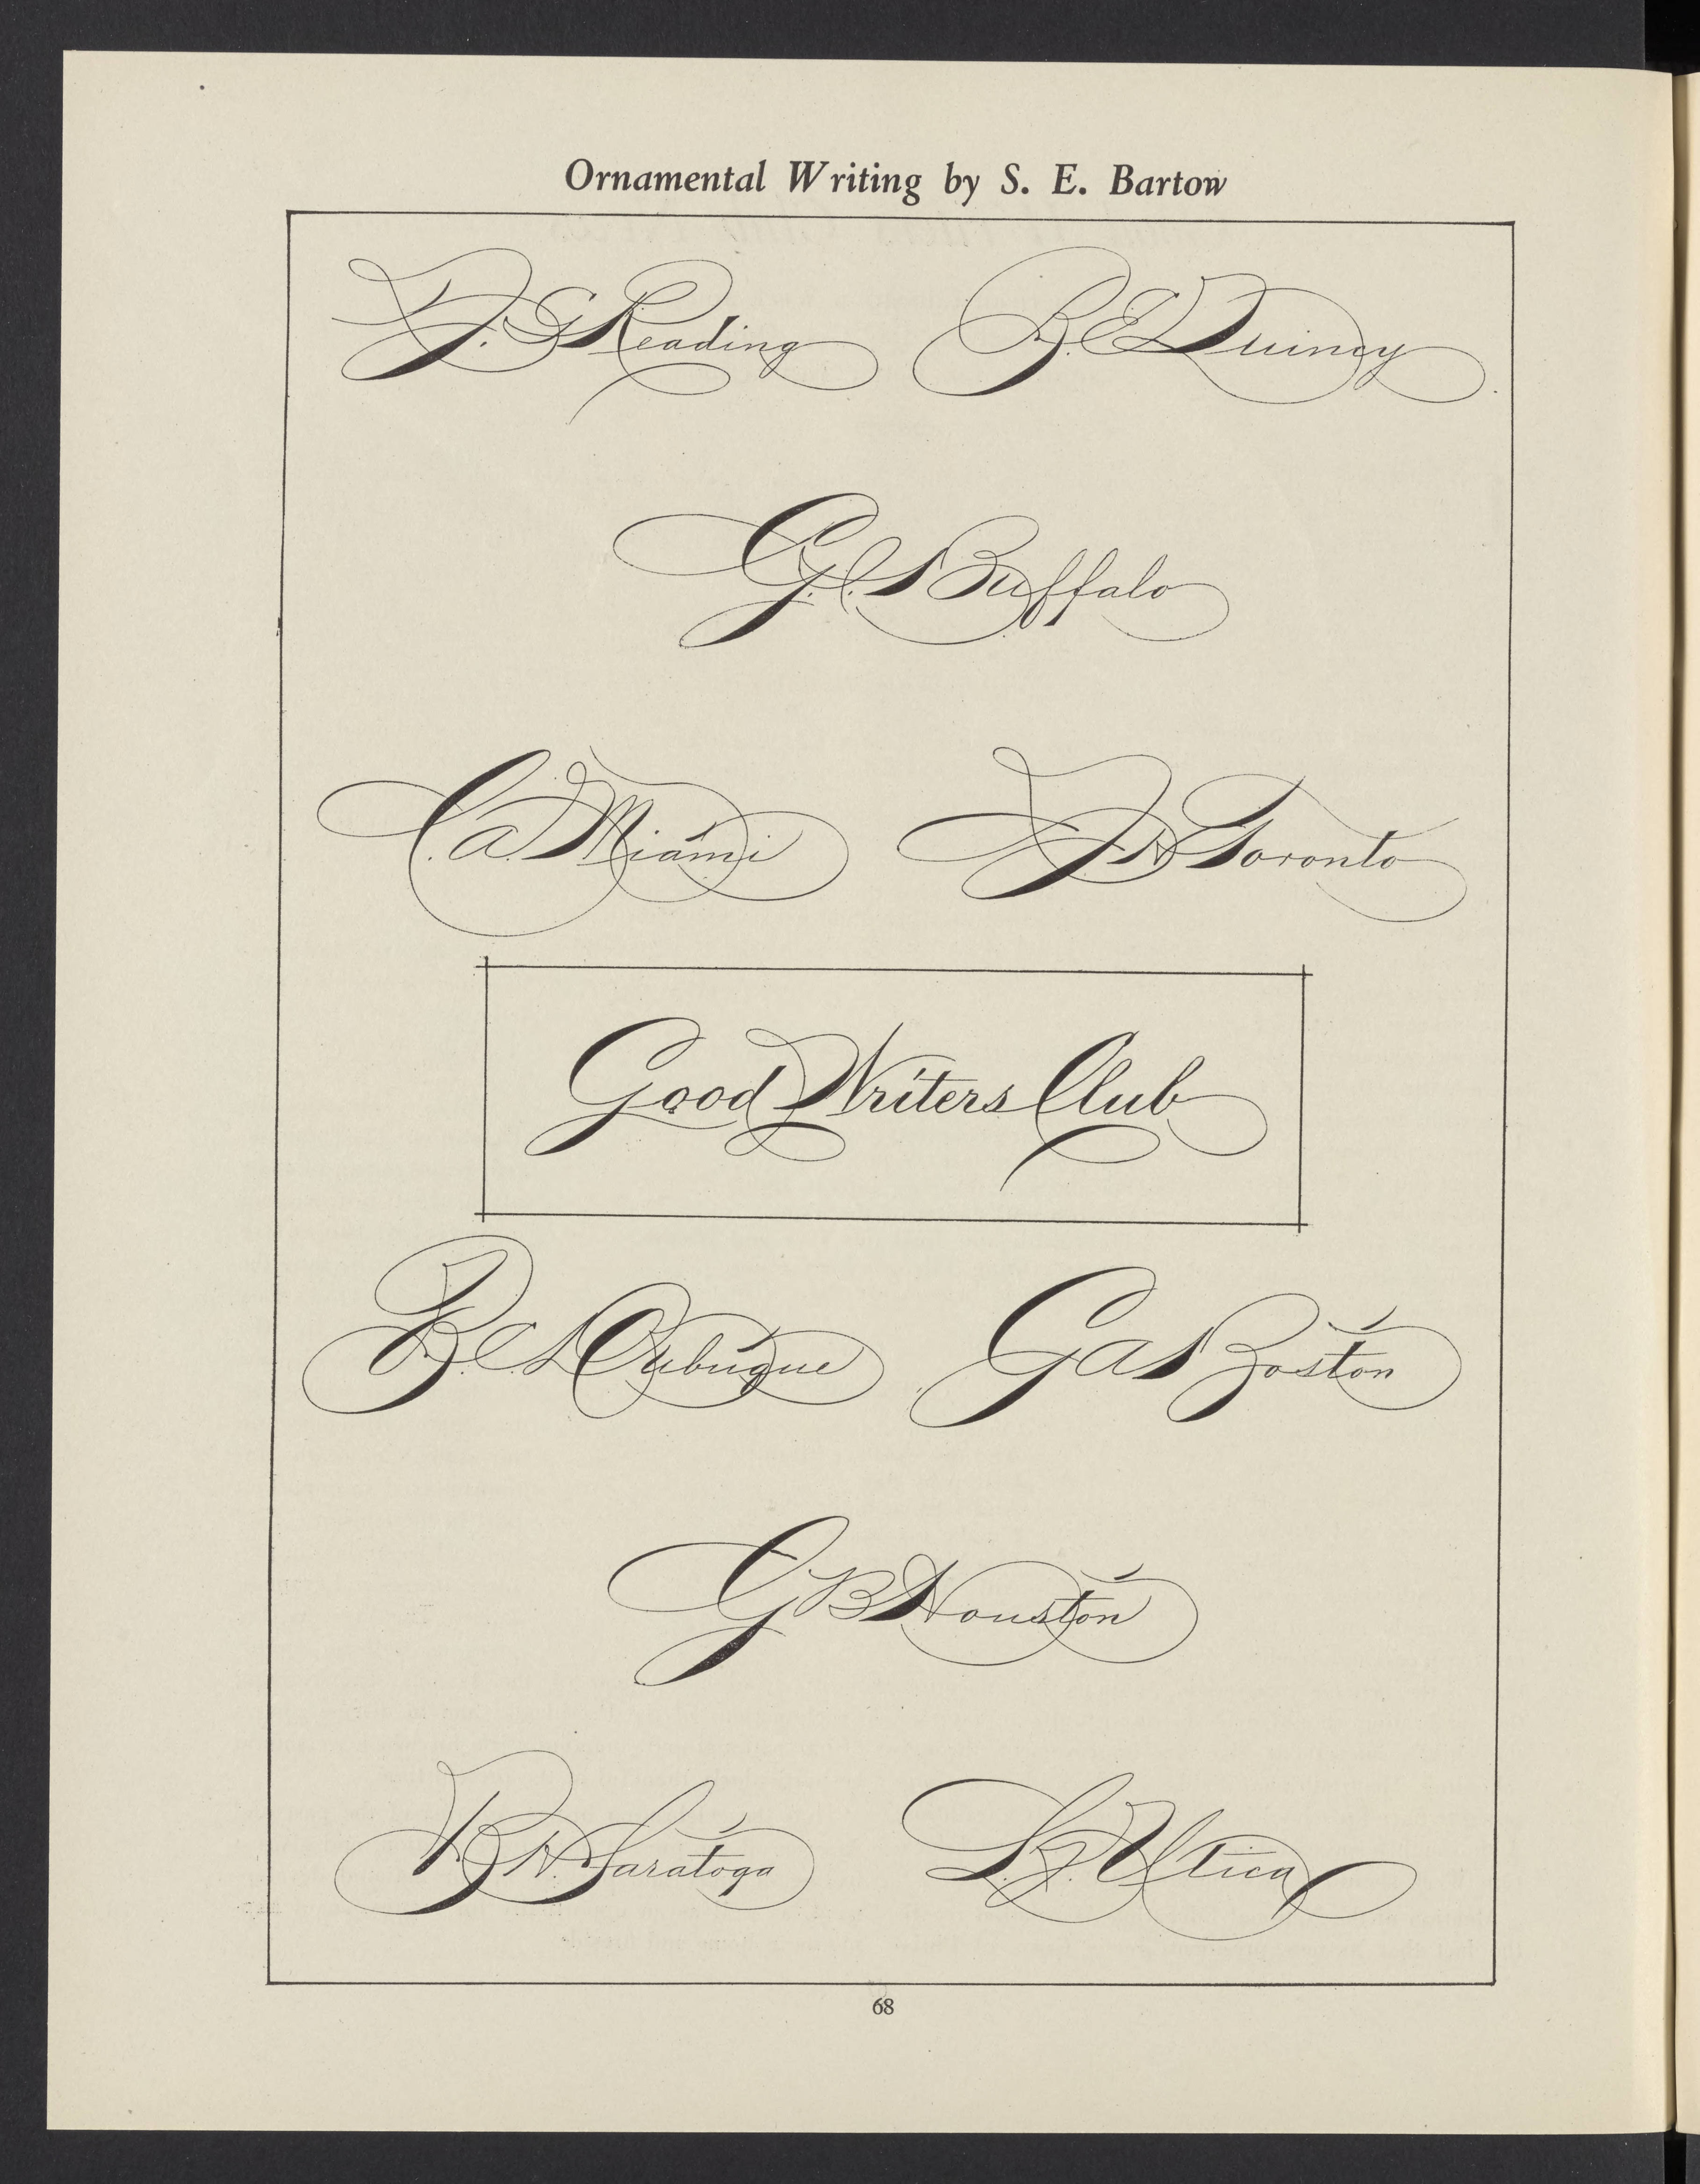 Ornamental Writing by S. E. Bartow
F. G. Reading B. E. Quincy
G. C. Buffalo
C. A. Miami F. H. Toronto
Good Writers Club
B. C. Dubuque G A Boston
G B Houston
B. H. Saratoga S. J. Utica
68